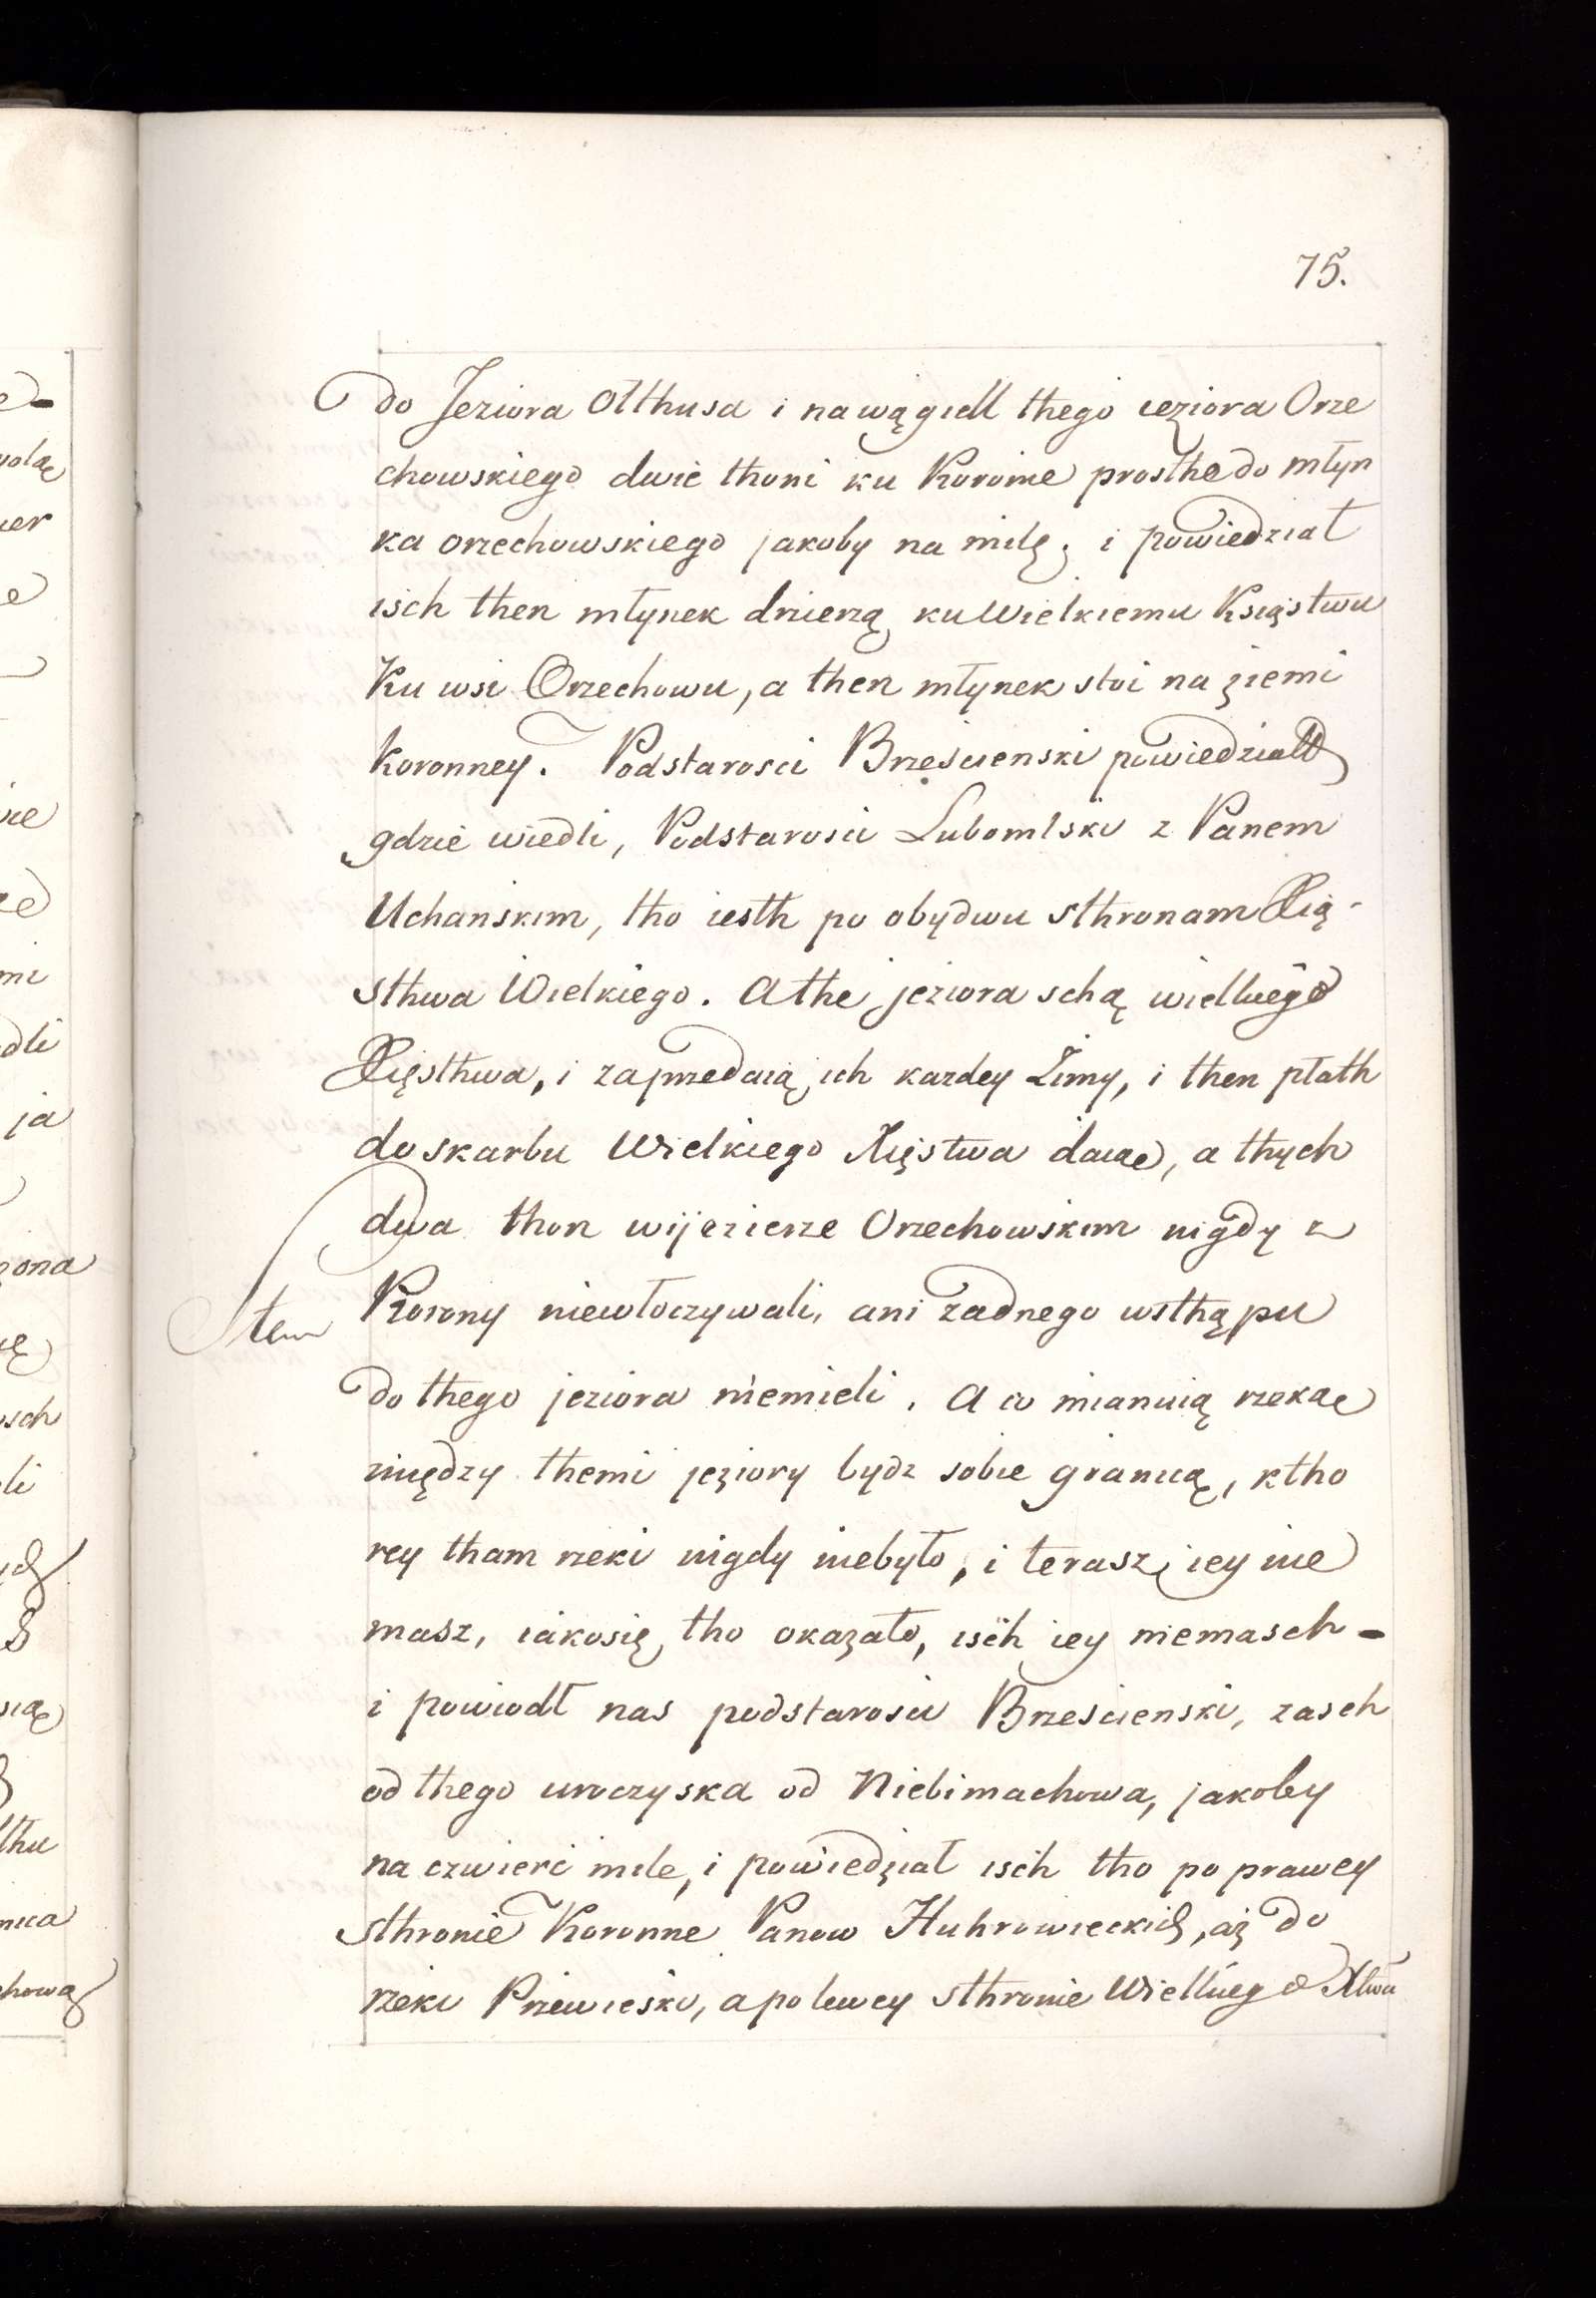 75.
do Jeziora Olthusa i na wągiell thego ieziora Orze
chowskiego dwie thoni ku Koronie prosthe do młyn
ka orzechowskiego jakoby na milę; i powiedział
isch then młynek drzierzą ku Wielkiemu Księstwu
Ku wsi Orzechowu, a then młynek stoi na ziemi
Koronney. Podstarosci Brzescienski powiedziall
gdzie wiedli, Podstarosci Lubomlski z Panem
Uchanskim, tho iesth po obydwu sthronam Xią-
sthwa Wielkiego. A the jeziora schą wielkiego
Xięsthwa, i zaprzedaią ich kazdey Zimy, i then płath
do skarbu Wielkiego Xięstwa daiąc, a thych
dwa thon w ijezierze Orzechowskim nigdy z
Korony niewłoczywali, ani zadnego wsthąpu
Item
do thego jeziora niemieli. A co mianuią rzekąe
między themi jeziory bydz sobie granicą, ktho
rey tham rzeki nigdy niebyło, i terasz iey nie
masz, iakosię tho okazało, isch iey niemasch -
i powiodł nas podstarosci Brzescienski, zasch
od thego uroczyska od Niebimachowa, jakoby
na czwierć mile, i powiedział isch tho po prawey
sthronie Koronne Panow Huhrowieckich, aż do
rzeki Przewieski, a po lewey sthronie Wielkiego Xtwa